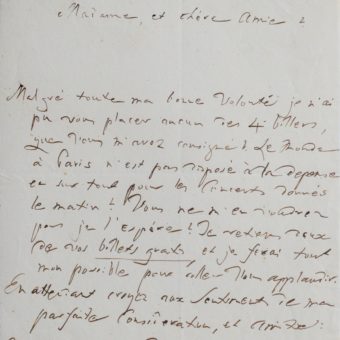 Madame, et chère Amie
Malgré toute ma bonne Volonté je n'ai
pu vous placer aucun des 4 billets,
que Vous m'avez consigné! Le Monde
à Paris n'est pas disposé à la depense
et sur tout pour les Concerts donnés
le matin! Vous ne m'en voudrez
pas je l'espère! Je retiens deux
de vos billets gratis, et je ferai tout
mon possible pour aller Vous applaudir.
En attendant croyez aux Sentiments de ma
parfaite Consideration, et amitié: